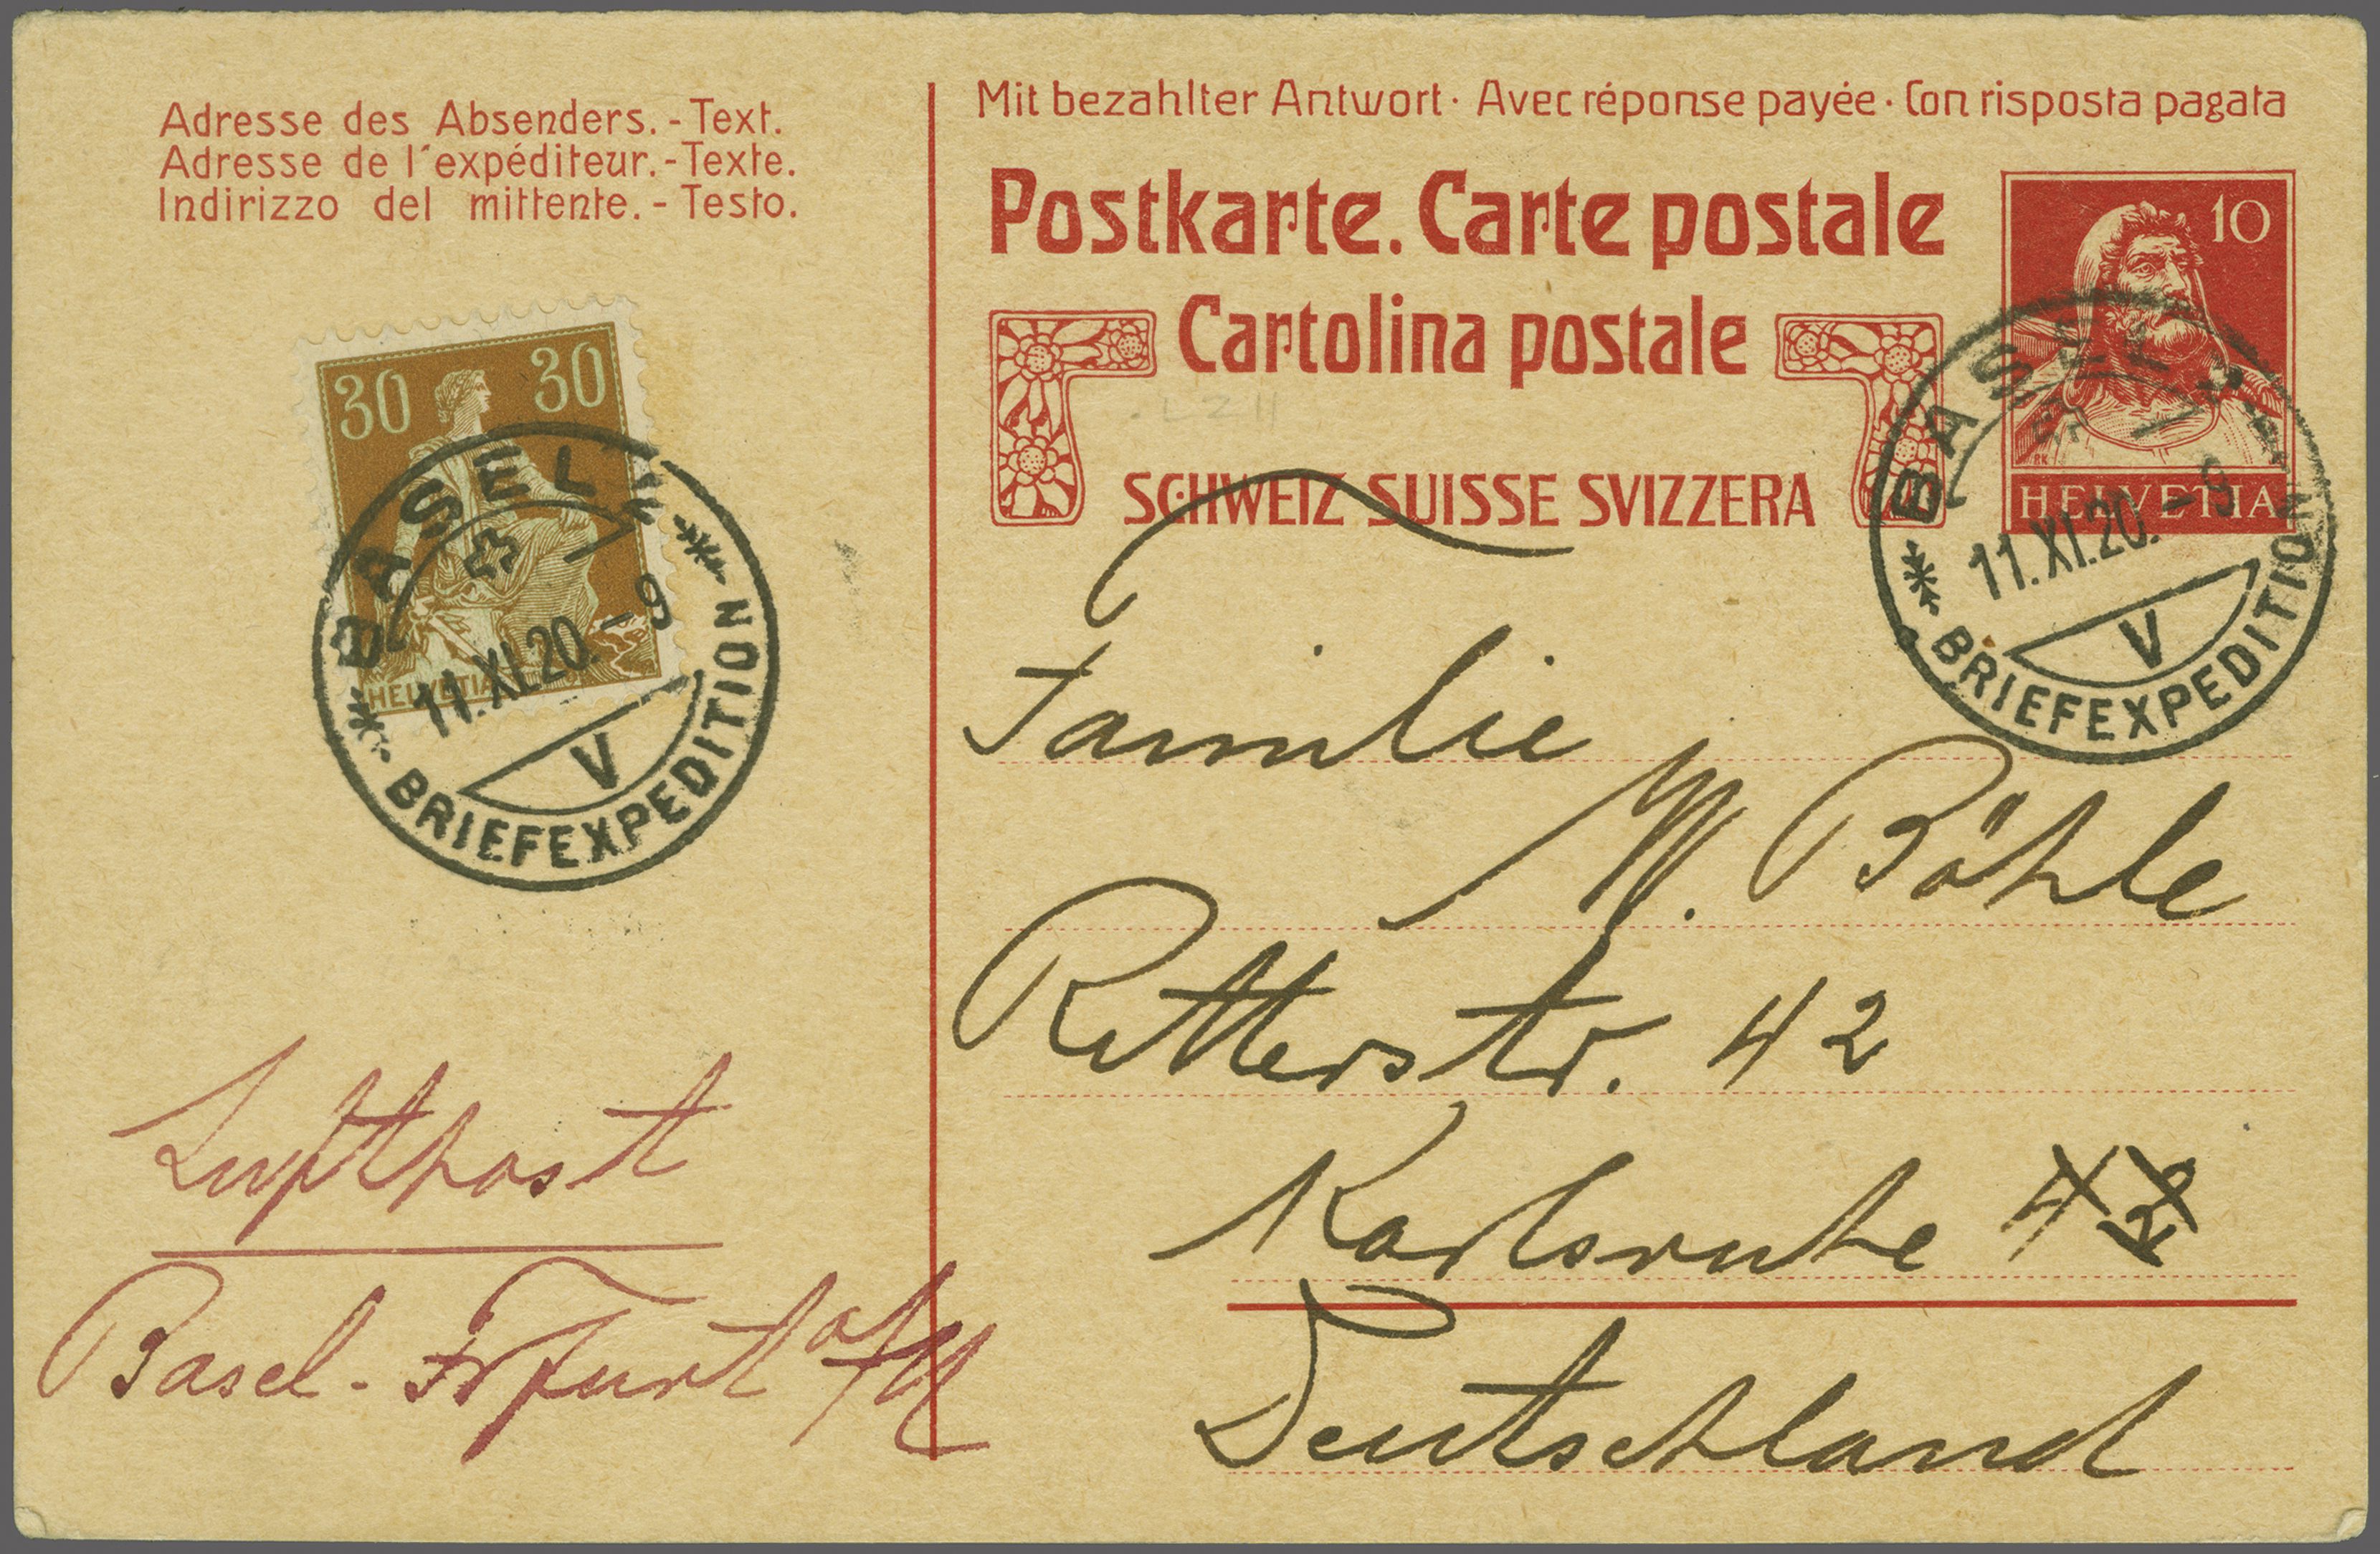 Adresse des Absenders. - Text.
Adresse de l'expéditeur. - Texte.
Indirizzo del mittente. - Testo.
Mit bezahlter Antwort · Avec réponse payée · Con risposta pagata
Postkarte. Carte postale
Cartolina postale
SCHWEIZ SUISSE SVIZZERA
10
HELVETIA
BASEL
11. XI. 20. - 9
V
BRIEFEXPEDITION
30 30
HELVETIA
BASEL
11. XI. 20. - 9
V
BRIEFEXPEDITION
Familie
W. Böhle
Ritterstr. 42
Karlsruhe
Deutschland
Luftpost
Basel - Frfurt a/M